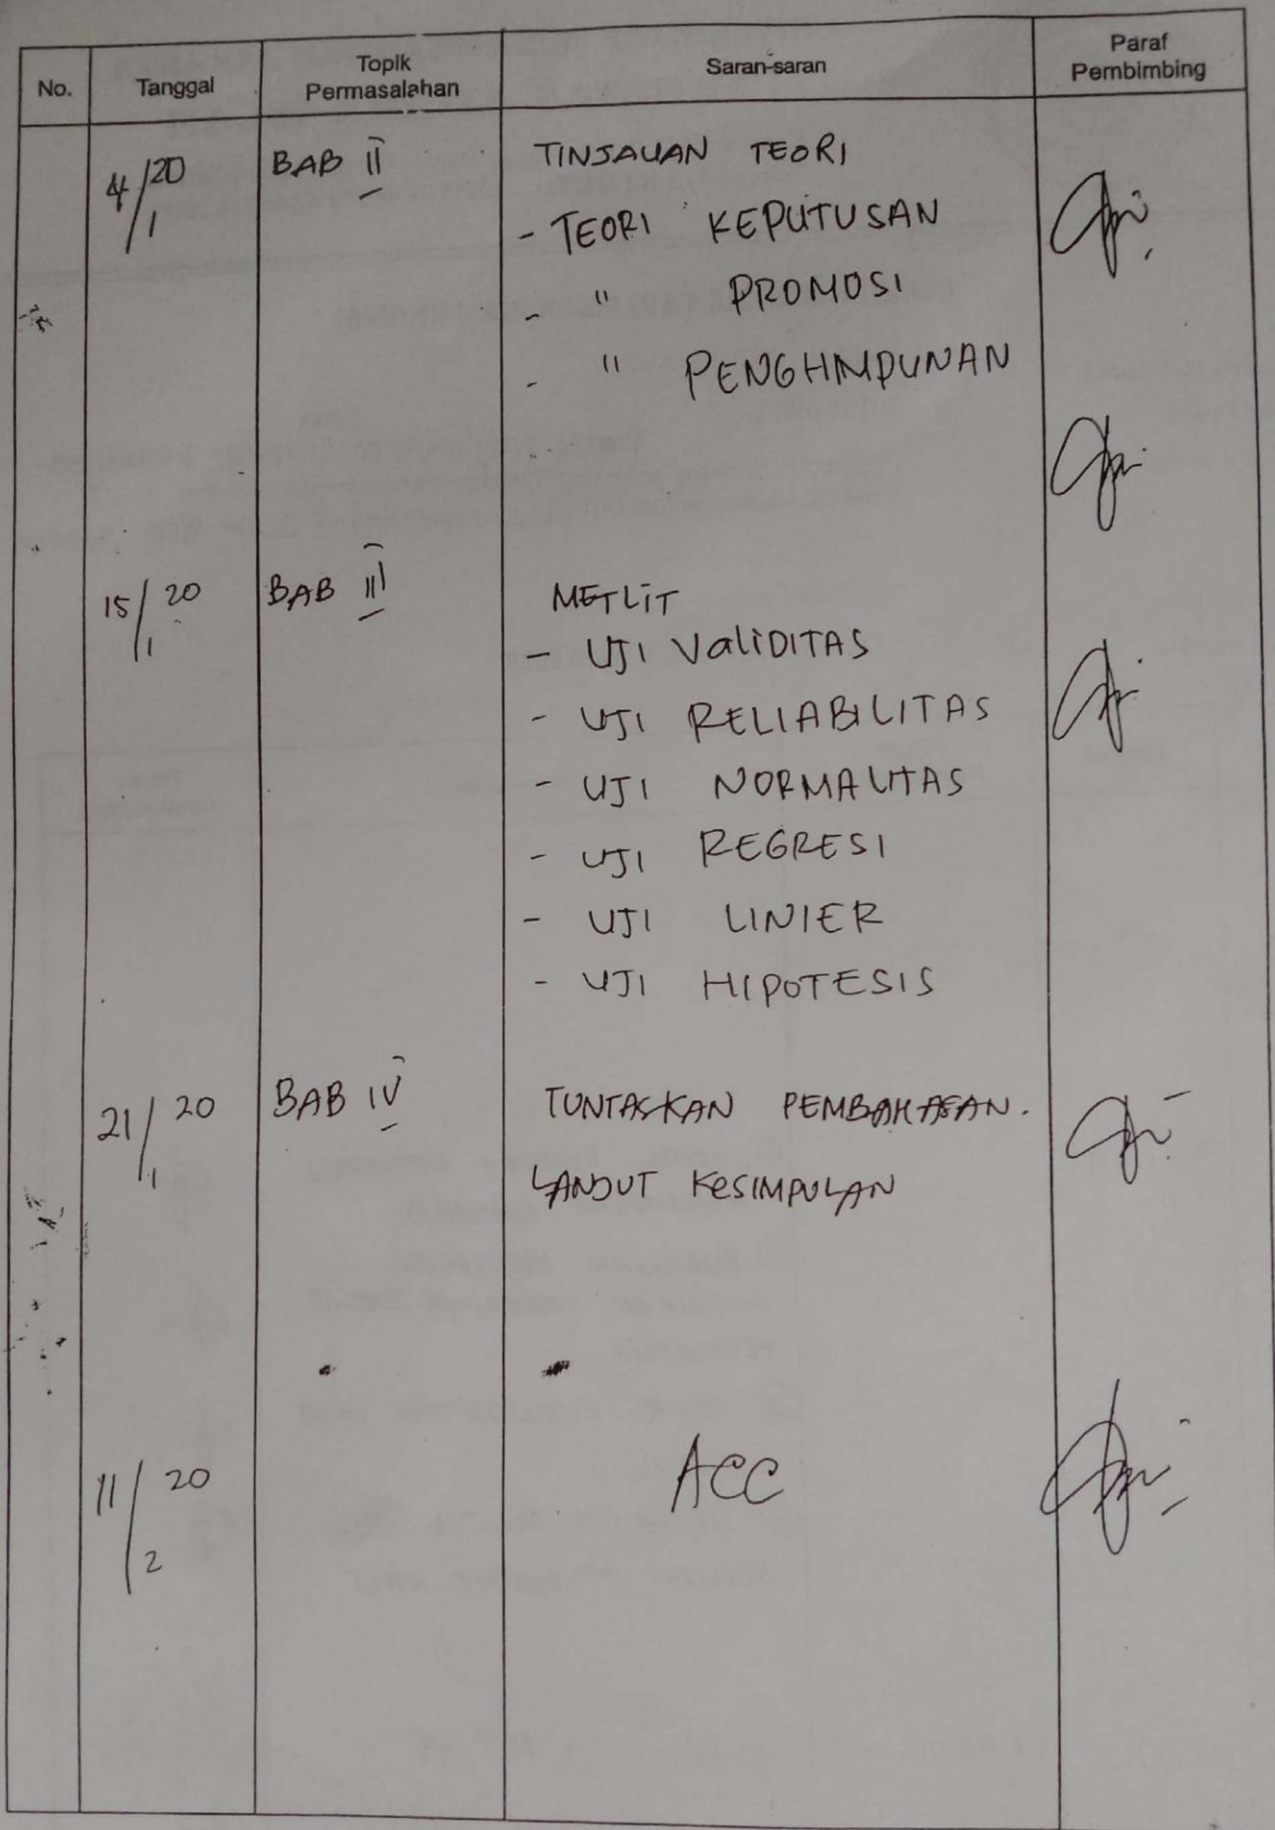 No. Tanggal Topik Permasalahan Saran-saran Paraf Pembimbing
4/1 20 BAB II TINJAUAN TEORI
- TEORI KEPUTUSAN
- " PROMOSI
- " PENGHIMPUNAN
15/1 20 BAB III METLIT
- UJI VALIDITAS
- UJI RELIABILITAS
- UJI NORMALITAS
- UJI REGRESI
- UJI LINIER
- UJI HIPOTESIS
21/1 20 BAB IV TUNTASKAN PEMBAHASAN.
LANJUT KESIMPULAN
11/2 20 ACC